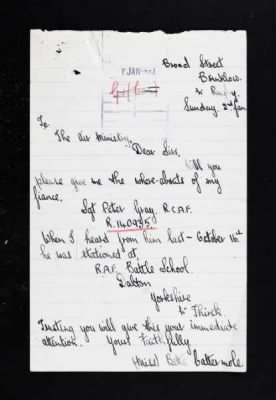 Broad Street
Brinklow.
Nr Rugby.
Sunday 2nd Jan
JAN
To
The Air Ministry,
Dear Sirs,
Will you
please give me the where-abouts of my
fiance.
Sgt Peter Gray R.C.A.F.
R.140935.
When I heard from him last - October 16th
he was stationed at,
R.A.F. Battle School.
Dalton
Yorkshire
Nr Thirsk.
Trusting you will give this your immediate
attention. Yours faithfully.
(Miss) Cattermole.